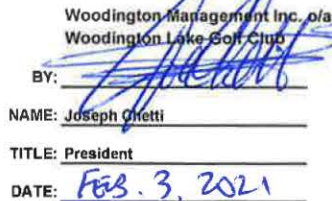 Woodington Management Inc. o/a
Woodington Lake Golf Club
BY:
NAME: Joseph Ghetti
TITLE: President
DATE: FEB. 3, 2021